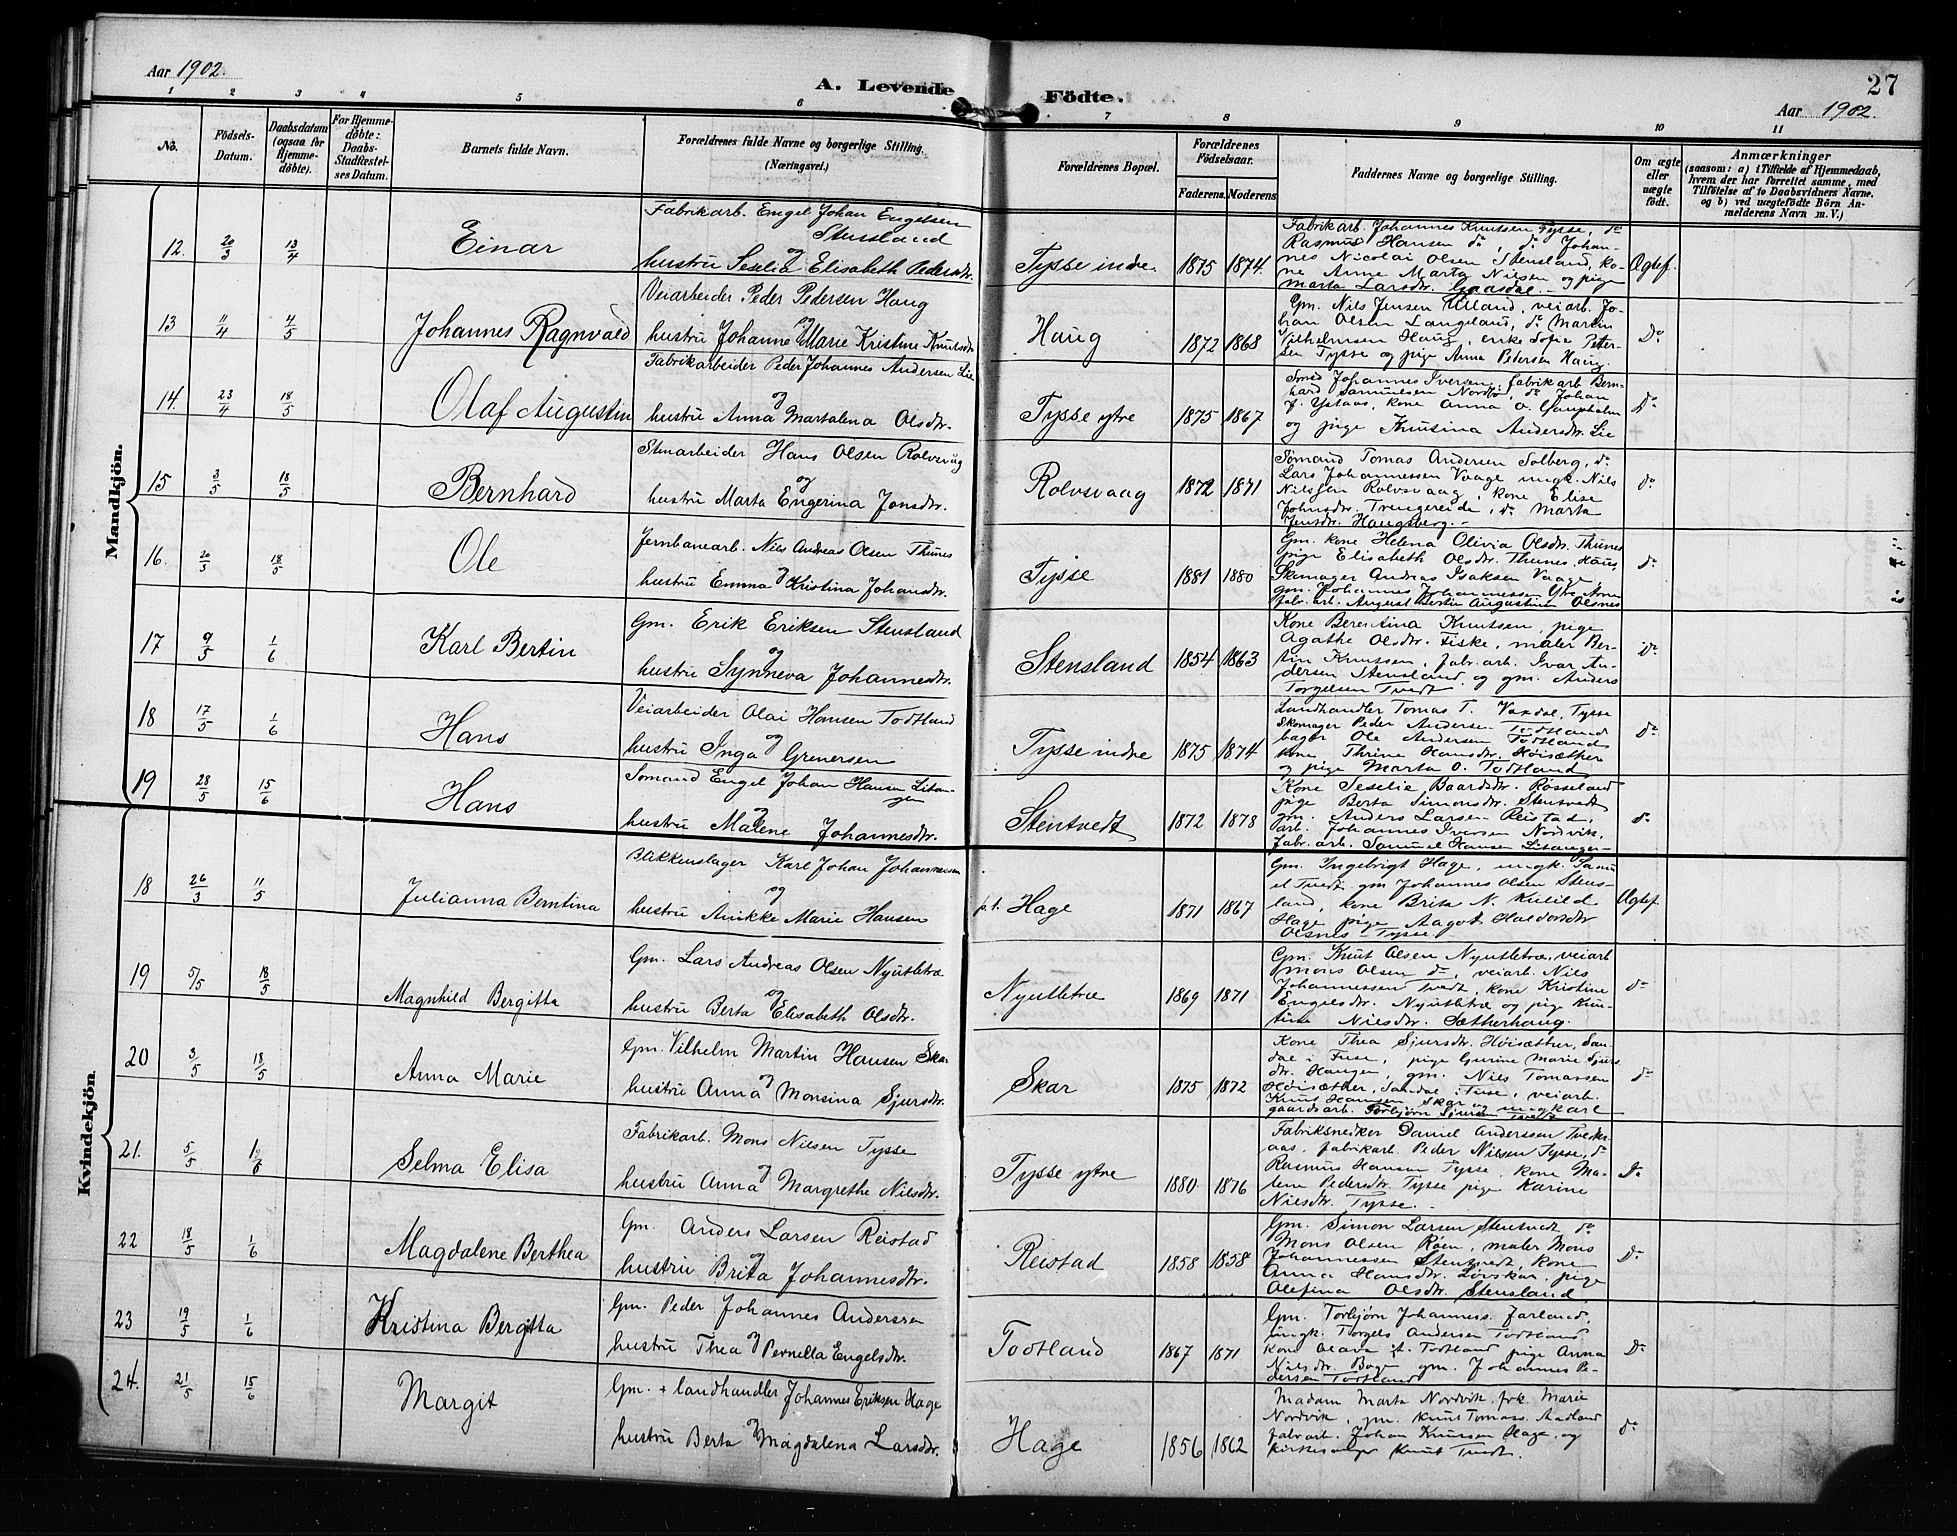 Aar 1902.
A. Levende Födte.
27
Aar 1902.
1 2 3 4 5 6 7 8 9 10 11
No.
Födsels-Datum.
Daabsdatum (ogsaa for Hjemmedöbte).
For Hjemmedöbte: Daabs-Stadfæstelses Datum.
Barnets fulde Navn.
Forældrenes fulde Navne og borgerlige Stilling. (Næringsvei.)
Forældrenes Bopæl.
Forældrenes Födselsaar.
Faderens. Moderens
Faddernes Navne og borgerlige Stilling.
Om ægte eller uægte födt.
Anmærkninger
(saasom: a) i Tilfælde af Hjemmedaab, hvem der har forrettet samme, med Tilföielse af to Daabsvidners Navne. og b) ved uægtefödte Börn Anmelderens Navn m. V.)
Mandkjön.
12. 20/3 13/4 Einar
Fabrikarb. Engel Johan Engelsen
Stensland
og
hustru Seselia Elisabeth Pedersdtr.
Tysse indre. 1875 1874.
Fabrikarb. Johannes Knutsen Tysse, do
Rasmus Hansen do, do Johan-
nes Nicolai Olsen Stensland, ko-
ne Anne Marta Nilsen og pige
Marta Larsdtr. Gaasdal.
Ægtef.
13 11/4 4/5 Johannes Ragnvald
Veiarbeider Peder Pedersen Haug
og
hustru Johanne Marie Kristine Knutsdtr.
Haug 1872 1868
Gm. Nils Jensen Ulland, veiarb. Jo-
han Olsen Langeland, do Martin
Vilhelmsen Haug, enke Sofie Peter-
sen Tysse og pige Anna Petersen Haug
Do
14. 23/4 18/5 Olaf Augustin
Fabrikarbeider Peder Johannes Andersen Lie
og
hustru Anna Martalena Olsdtr.
Tysse ytre 1875 1867
Smed Johannes Iversen, fabrikarb. Bern-
hard Samuelsen Nordbø, do Johan
J. Ystaas, kone Anna O. Gaupholm
og pige Knutsina Andersdtr. Lie
Do
15 3/5 18/5 Bernhard
Stenarbeider Hans Olsen Rolvsvåg
og
hustru Marta Engerina Jonsdtr.
Rolvsvaag 1872 1871
Sømand Tomas Andersen Solberg, do
Lars Johannessen Vaage ungk. Nils
Nilssen Rolvsvaag, kone Elise
Johnsdtr. Trengereide, do Marta
Jensdtr. Haugsberg.
do
16. 20/5 18/5 Ole
Jernbanearb. Nils Andreas Olsen Thunes
og
hustru Emma Kristina Johansdtr.
Tysse 1881 1880
Gm. kone Helena Olivia Olsdtr. Thunes
pige Elisabeth Olsdtr. Thunes Haus,
Skomager Andreas Isaksen Vaage,
gm. Johannes Johannessen Ytre Arne
fabr. arb. August Bertin Augustinsen Olsnes
do
17 9/5 1/6 Karl Bertin
Gm. Erik Eriksen Stensland
og
hustru Synneva Johannesdtr.
Stensland 1854 1863
Kone Berentina Knutsen, pige
Agathe Olsdtr. Fiske, maler Ber-
tin Knutssen, fabr. arb. Ivar An-
dersen Stensland og gm. Anders
Torgelsen Tvedt
Do
18 17/5 1/6 Hans
Veiarbeider Olai Hansen Todtland
og
hustru Inga Grenersen
Tysse indre 1875 1874
Landhandler Tomas T. Vaxdal, Tysse
Skomager Peder Anderse. Todtland
bager Ole Andersen Todtland
kone Thrine Hansdtr. Høisæther
og pige Marta O. Todtland
do
19 28/5 15/6 Hans
Sømand Engel Johan Hansen Litan-
gen
og
hustru Malene Johannesdtr.
Stentvedt 1872 1878
Kone Seselie Baardsdtr. Røsseland
pige Berta Simonsdtr. Stentvedt
gm. Anders Larsen Reistad,
arb. Johannes Iversen Nordvik,
fabr. arb. Samuel Hansen Litanger
do
Kvindekjön.
18 26/3 11/5 Julianna Berntina
Blikkenslager Karl Johan Johannessen
og
hustru Anikke Marie Hansen
p.t. Hage 1871 1867
Gm. Ingebrigt Hage, ungk. Samu-
el Tvedt gm Johannes Olsen Stens-
land, kone Brita N. Kulild
Hage pige Aagot Haldorsdtr
Olsnes - Tysse
Ægtef
19 5/5 18/5 Magnhild Bergitta
Gm. Lars Andreas Olsen Nyutletræ
og
hustru Berta Elisabeth Olsdtr.
Nyutletræ 1869 1871
Gm. Knut Olsen Nyutletræ, veiarb
Mons Olsen do, veiarb. Nils
Johannessen Tvedt, kone Kristine
Engelsdtr. Nyutletræ og pige Knu-
tine Nilsdtr. Sætherhaug.
do
20 3/5 18/5 Anna Marie
Gm. Vilhelm Martin Hansen Skar
og
hustru Anna Monsina Sjursdtr.
Skar 1875 1872
Kone Thea Sjursdtr. Høisæther, San-
dal i Fuse, pige Gurine Marie Sjurs
dtr. Haugen, gm. Nils Tomassen
Høisæther, Sandal i Fuse, veiarb.
Knut Hansen Skar og ungkarl
gaardsarb. Torbjørn Sjursen Tvedt
do
21. 5/5 1/6 Selma Elisa
Fabrikarb. Mons Nilsen Tysse
og
hustru Anna Margrethe Nilsdtr.
Tysse ytre 1880 1876
Fabriksnedker Daniel Anderssen Tveter-
aas, fabrikarb. Peder Nilsen Tysse, do
Rasmus Hansen Tysse, kone Ma-
lene Pedersdtr. Tysse pige Karine
Nilsdtr. Tysse.
Do
22 18/5 1/6 Magdalene Berthea
Gm. Anders Larsen Reistad
og
hustru Brita Johannesdtr.
Reistad 1858 1858
Gm. Simon Larsen Stentvedt do
Mons Olsen Røen, maler Mons
Johannessen Stentvedt, kone
Anna Hansdtr. Løvskar, pige
Olefina Olsdtr. Stensland
Do
23 19/5 1/6 Kristina Bergitta
Gm. Peder Johannes Anderssen
og
hustru Thea Pernella Engelsdtr.
Todtland 1867 1871
Gm. Torbjørn Johanness. Farland,
ungk. Torgels Andersen Todtland
kone Olava A. Todtland pige Anna
Nilsdtr. Boge gm. Johannes Pe-
dersen Todtland
Do
24. 21/5 15/6 Margit
Gm. + landhandler Johannes Eriksen Hage
og
hustru Berta Magdalena Larsdtr.
Hage 1856 1862
Madam Marta Nordvik, frk. Marie
Nordvik, gm. Knut Tomass. Aadland
fabr arb. Johan Knutsen Hage, og
kirkesanger Knut Tvedt.
do